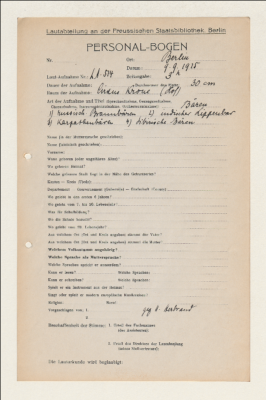 Lautabteilung an der Preussischen Staatsbibliothek, Berlin
PERSONAL-BOGEN
Nr. Ort: Berlin
Datum: 9.9.1925
Laut-Aufnahme Nr.: LA-514 Zeitangabe: 3h
Dauer der Aufnahme: Durchmesser der Platte: 30 cm
Raum der Aufnahme: Circus Krone (Hof)
Art der Aufnahme und Titel
Bären
1) russisch Braunbären 2) indischer Lippenbär
3) Karpathenbären 4) sibirische Bären
Name (in der Muttersprache geschrieben):
Name (lateinisch geschrieben):
Vorname:
Wann geboren (oder ungefähres Alter):
Wo geboren (Heimat):
Welche grössere Stadt liegt in der Nähe des Geburtsortes:
Kanton — Kreis (Tribe):
Departement — Gouvernement (Governship) — Grafschaft (County):
Wo gelebt in den ersten 6 Jahren?
Wo gelebt vom 7. bis 20. Lebensjahr?
Was für Schulbildung?
Wo die Schule besucht?
Wo gelebt vom 20. Lebensjahr?
Aus welchem Ort (Ort und Kreis angeben) stammt der Vater?
Aus welchem Ort (Ort und Kreis angeben) stammt die Mutter?
Welchem Volksstamm angehörig?
Welche Sprache als Muttersprache?
Welche Sprachen spricht er ausserdem?
Kann er lesen? Welche Sprachen?
Kann er schreiben? Welche Sprachen?
Spielt er ein Instrument aus der Heimat?
Singt oder spielt er modern europäische Musikweisen?
Religion: Beruf:
Vorgeschlagen von: 1.
2.
Beschaffenheit der Stimme: 1. Urteil des Fachmannes
(des Assistenten)
2. Urteil des Direktors der Lautabteilung
(seines Stellvertreters)
Die Lauturkunde wird beglaubigt: